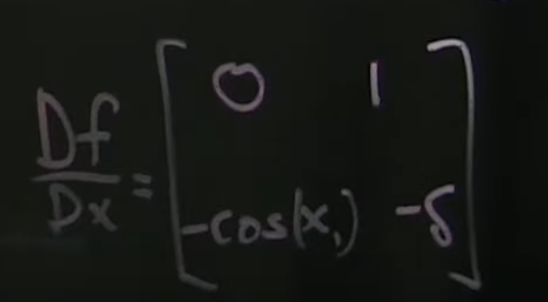 Df/Dx = [ 0 1
-cos(x₁) -δ ]